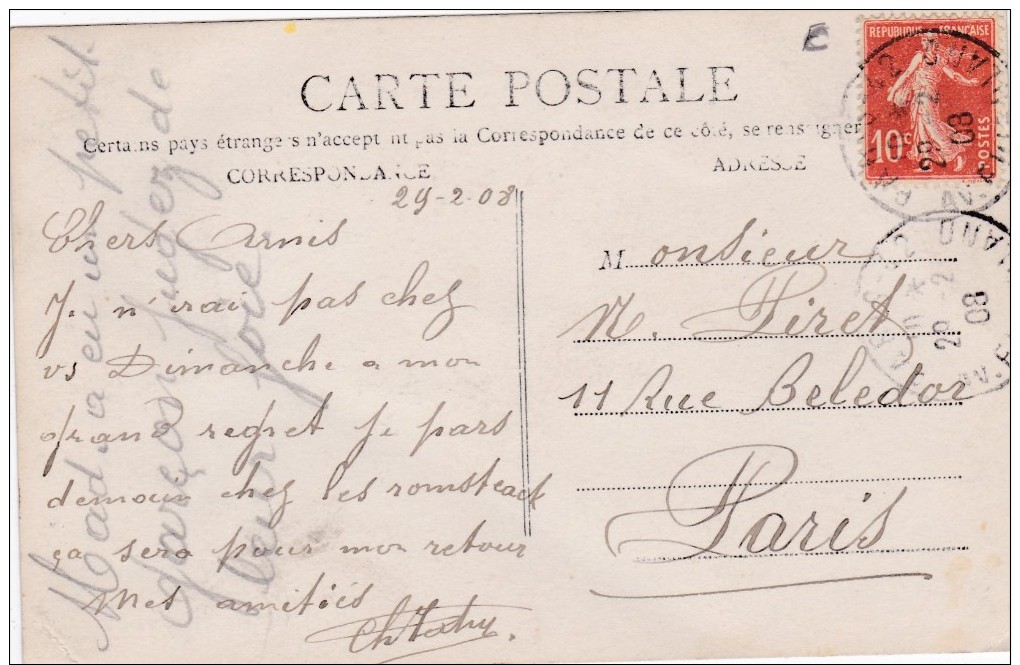 CARTE POSTALE
Certains pays étrangers n'acceptent pas la Correspondance de ce côté, se renseigner
CORRESPONDANCE
ADRESSE
RÉPUBLIQUE FRANÇAISE
10c
POSTES
29-2-08
Chers Amis
Je n'irai pas chez
vs Dimanche a mon
grand regret je pars
demain chez les romsteack
ça sera pour mon retour
Mes amitiés
Monsieur
M. Piret
11 Rue Beledor
Paris
Mad. a eu un petit
garçon jugez de
leur joie
29 2 08
29 2 08
E